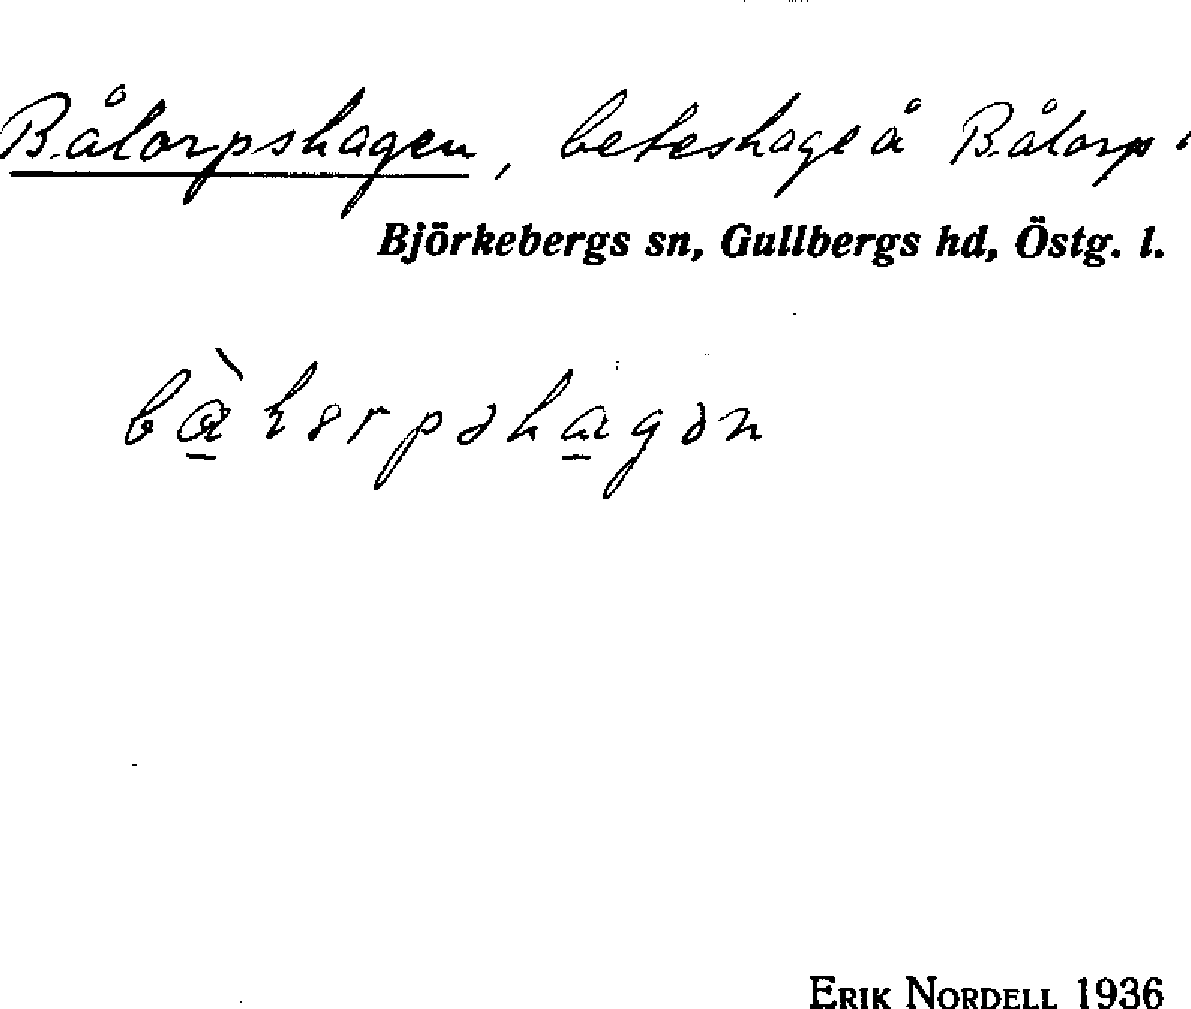 Bålorpshagen, beteshage å Bålorp i
Björkebergs sn, Gullbergs hd, Östg. l.
ERIK NORDELL 1936